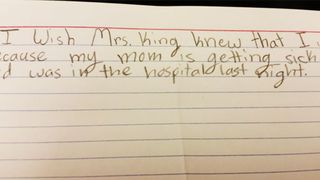 I Wish Mrs. King knew that I
cause my mom is getting sick
was in the hospital last night.